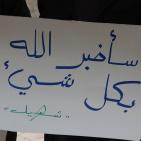 سأخبر الله
بكل شيء